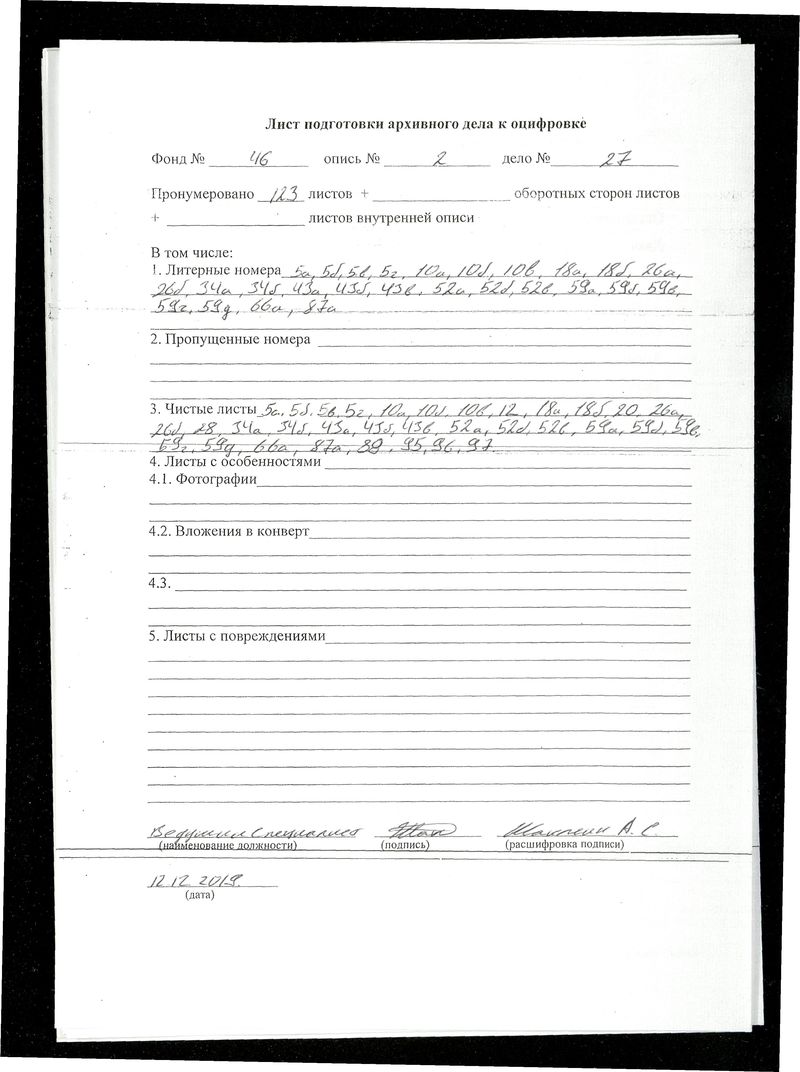 Лист подготовки архивного дела к оцифровке
Фонд № 46 опись № 2 дело № 27
Пронумеровано 123 листов + оборотных сторон листов
+ листов внутренней описи
В том числе:
1. Литерные номера 5а, 5б, 5в, 5г, 10а, 10б, 10в, 18а, 18б, 26а,
26б, 34а, 34б, 43а, 43б, 43в, 52а, 52б, 52в, 59а, 59б, 59в,
59г, 59д, 66а, 87а
2. Пропущенные номера
3. Чистые листы 5а, 5б, 5в, 5г, 10а, 10б, 10в, 12, 18а, 18б, 20, 26а,
26б, 28, 34а, 34б, 43а, 43б, 43в, 52а, 52б, 52в, 59а, 59б, 59в,
59г, 59д, 66а, 87а, 89, 95, 96, 97.
4. Листы с особенностями
4.1. Фотографии
4.2. Вложения в конверт
4.3.
5. Листы с повреждениями
Ведущий специалист А. С.
(наименование должности) (подпись) (расшифровка подписи)
12.12.2019.
(дата)